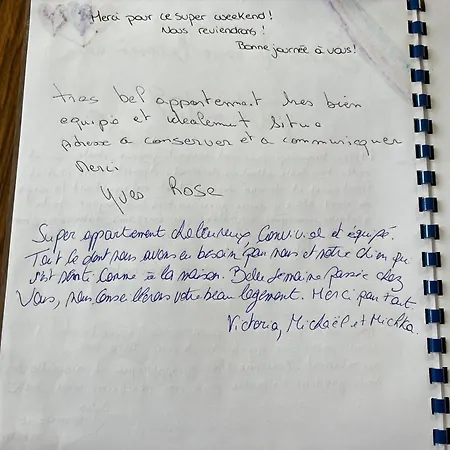 Merci pour ce super weekend!
Nous reviendrons!
Bonne journée à vous!
tres bel appartement tres bien
equipé et idealement situe
Adresse a conserver et a communiquer
Merci
Yves Rose
Super appartement chaleureux, Convivial et équipé.
Tout ce dont nous avons eu besoin pour nous et notre chien qui
s'est senti comme à la maison. Belle semaine passée chez
Vous, nous conseillerons votre beau logement. Merci pour tout.
Victoria, Michaël et Michka.